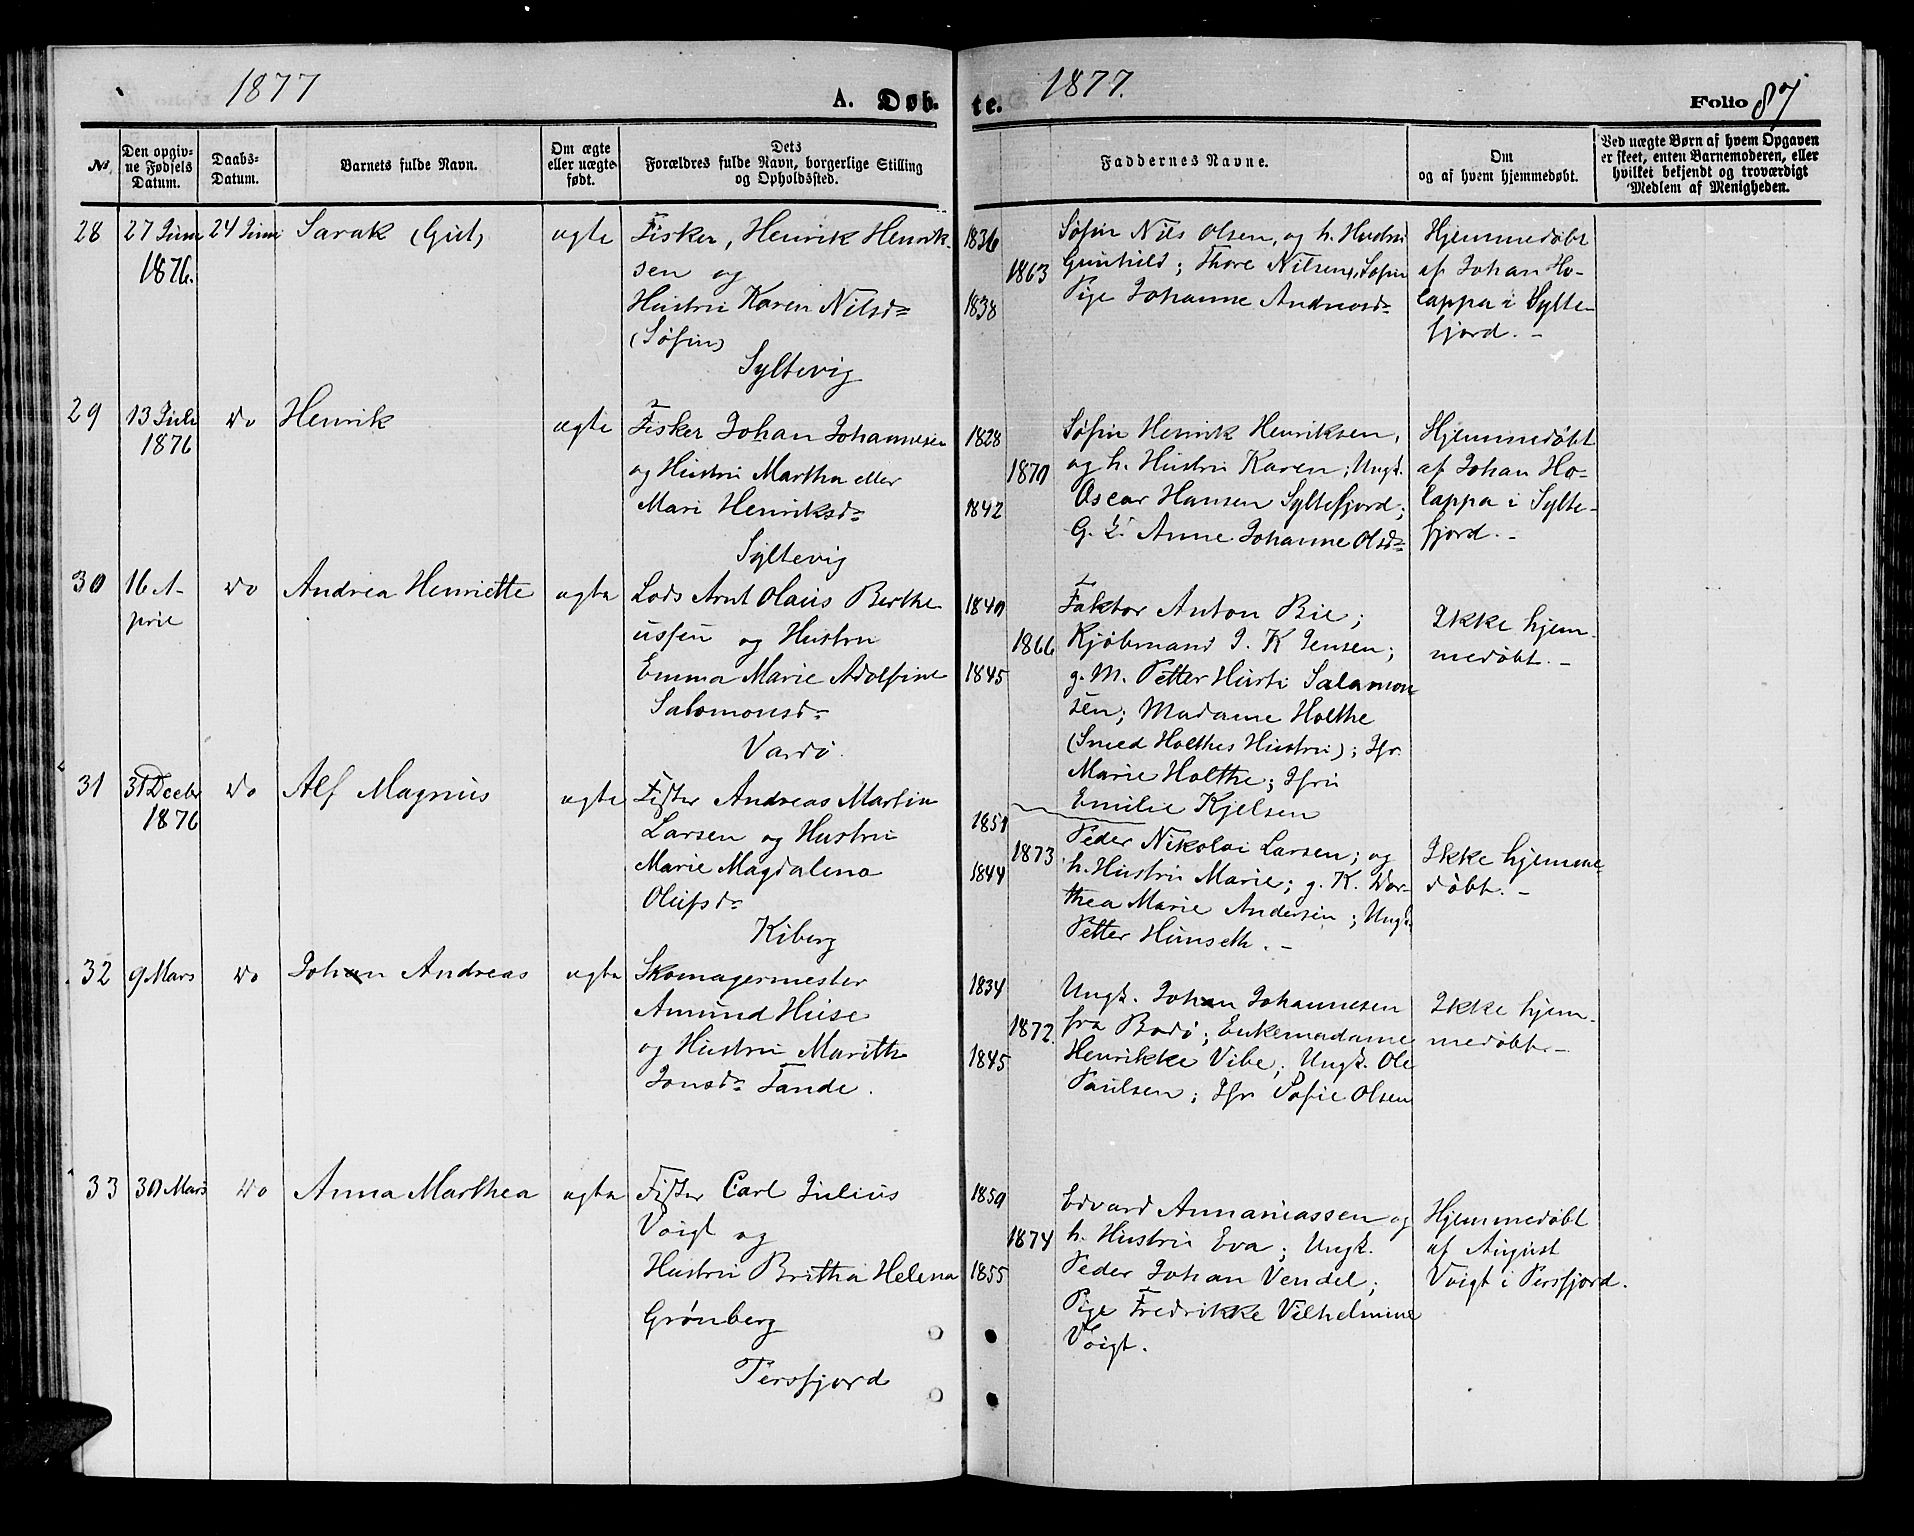 1877
A. Døb-
№
Den opgiv-
ne Fødsels
Datum.
Daabs-
Datum.
Barnets fulde Navn.
Om ægte
eller uægte
født.
Dets
Forældres fulde Navn, borgerlige Stilling
og Opholdssted.
28
27 Juni
1876.
24 Juni
Sarak (Gut)
ægte
Fisker, Henrik Henrik-
sen og
Hustru Karen Nilsdr
(Søfin)
Syltevig
29
13 Juli
1876
do
Henrik
ægte
Fisker Johan Johannesen
og Hustru Martha eller
Mari Henriksdr
Syltevig
30
16 A-
pril
do
Andrea Henriette
ægte
Lods Arnt Olaus Berthe
ussen og Hustru
Emma Marie Adolfine
Salomonsdr
Vardø.
31
31 Decbr
1876
do
Alf Magnus
ægte
Fisker Andreas Martin
Larsen og Hustru
Marie Magdalena
Olufsdr
Kiberg
32
9 Mars
do
Johan Andreas
ægte
Skomagermester
Amund Huse
og Hustru Marith
Jonsdr Tande.
33
30 Mars
do
Anna Marthea
ægte
Fisker Carl Julius
Voigt og
Hustru Britha Helena
Grønberg
Persfjord
te.
1877.
Folio 87
Faddernes Navne.
Om
og af hvem hjemmedøbt.
Ved uægte Børn af hvem Opgaven
er skeet, enten Barnemoderen, eller
hvilket bekjendt og troværdigt
Medlem af Menigheden.
1836
1863
1838
Søfin Nils Olsen, og h. Hustru
Gunhild; Thore Nilsen, Søfin
Pige Johanne Andreasdr
Hjemmedøbt
af Johan Ho-
lappa i Sylte-
fjord. -
1828
1870
1842
Søfin Henrik Henriksen,
og h. Hustru Karen; Ungk.
Oscar Hansen Syltefjord;
G. K. Anne Johanne Olsdr
Hjemmedøbt
af Johan Ho-
lappa i Sylte-
fjord. -
1840
1866
1845
Faktor Anton Bie;
Kjøbmand J. K Jensen;
g. M. Petter Salamon
sen; Madame Holthe
(Smed Holthes Hustru); Jfr.
Marie Holthe; Jfru
Emilie Kjelsen
Ikke hjem-
medøbt. -
1851
1873
1844
Peder Nikolai Larsen; og
h. Hustru Marie; g. K. Dor-
thea Marie Andersen; Ungk.
Petter Himseth. -
Ikke hjemme-
døbt. -
1834
1872.
1845
Ungk. Johan Johannesen
fra Bodø; Enkemadame
Henrikke Vibe; Ungk. Ole
Paulsen; Jfr Sofie Olsen
Ikke hjem-
medøbt. -
1850
1874
1855
Edvard Annaniassen og
h. Hustru Eva; Ungk.
Peder Johan Vendel;
Pige Fredrikke Vilhelmine
Voigt.
Hjemmedøbt
af August
Voigt i Persfjord.